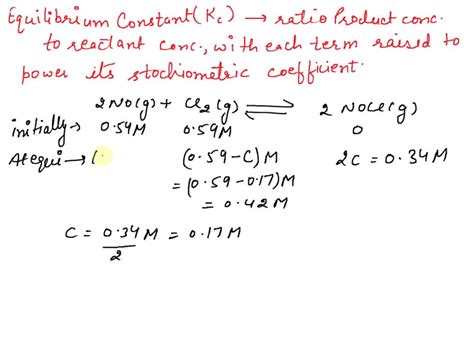 Equilibrium Constant (Kc) → ratio Product conc.
to reactant conc., with each term raised to
power its stochiometric coefficient.
2NO(g) + Cl2(g) ⇌ 2 NOCl(g)
initially → 0.54M 0.59M 0
At equi → ( (0.59-C)M 2C = 0.34M
= (0.59-0.17)M
= 0.42M
C = 0.34M/2 = 0.17M